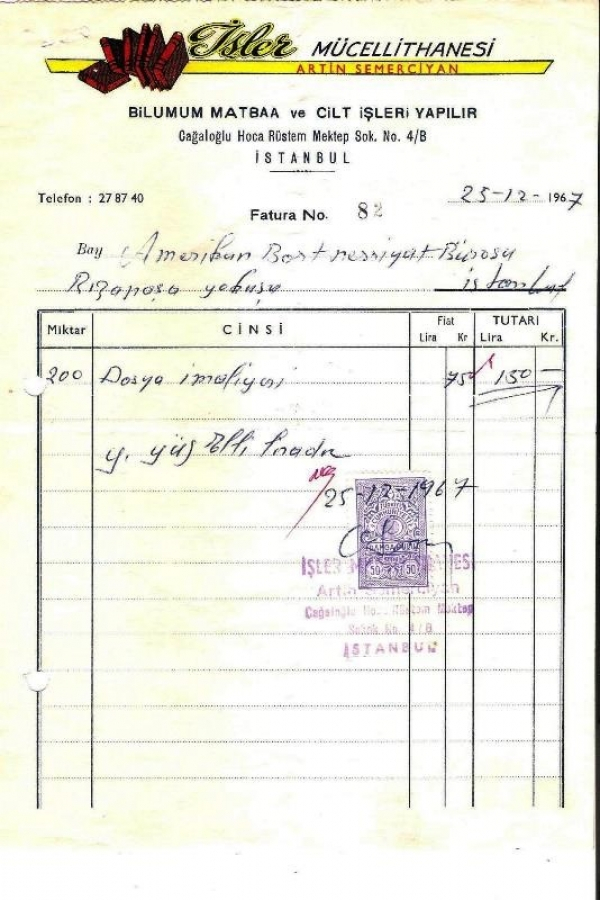 İşler MÜCELLİTHANESİ
ARTİN SEMERCİYAN
BİLUMUM MATBAA ve CİLT İŞLERİ YAPILIR
Cağaloğlu Hoca Rüstem Mektep Sok. No. 4/B
İSTANBUL
Telefon : 27 87 40
25-12-1967
Fatura No. 82
Bay Amerikan Bort neşriyat Bürosu
Rızapaşa yokuşu istanbul
Miktar CİNSİ Fiat TUTARI
Lira Kr Lira Kr.
200 Dosya imaliyesi 75 150 —
Y. yüz Elli liradır
25-12-1967
50 50
İŞLER
Artin Semerciyan
Cağaloğlu Hoca Rüstem Mektep
Sokak No. 4/B
İSTANBUL